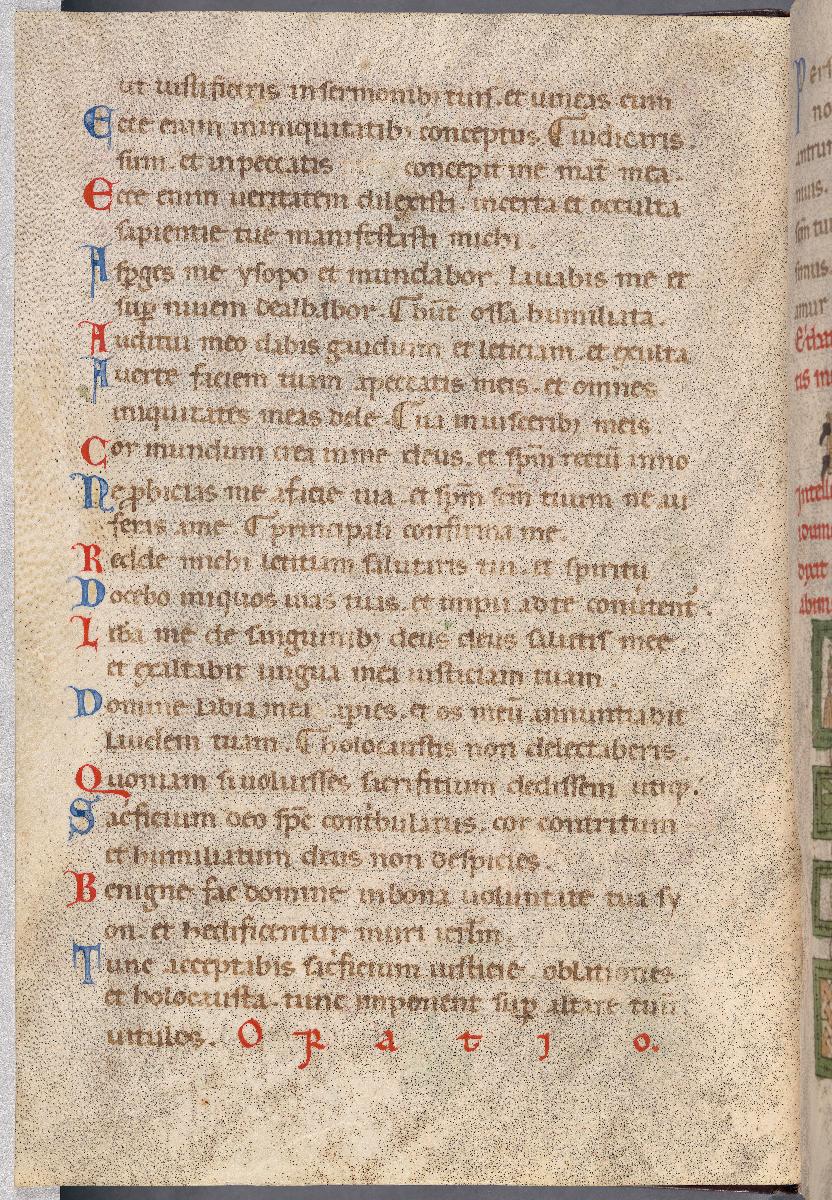 ut iustificeris in sermonib; tuis. et uincas cum
Ecce enim ininiquitatib; conceptus ⁋ iudicaris.
sum. et inpeccatis concepit me mat̄ mea.
Ecce enim ueritatem dilexisti. incerta et occulta
sapientie tue manifestasti michi.
Asp̱ges me ysopo et mundabor. lauabis me et
sup̱ niuem dealbabor. ⁋ būt ossa humiliata.
Auditui meo dabis gaudium et leticiam. et exulta
Auerte faciem tuam apeccatis meis. et omnes
iniquitates meas dele. ⁋ ua inuisceribz meis.
Cor mundum crea inme deus. et sp̄m rectū inno
Ne ꝓhicias me afacie tua. et sp̄m sc̄m tuum ne au
feris ame. ⁋ principali confirma me.
Redde michi letitiam salutaris tui. et spiritu
Docebo iniquos uias tuas. et impii adte conuertent̄.
Libera me de sanguinib; deus deus salutis mee.
et exaltabit lingua mea iusticiam tuam.
Domine labia mea ap̱ies. et os meū annuntiabit
laudem tuam. ⁋ holocaustis non delectaberis.
Quoniam si uoluisses sacrifitium dedissem utiq;.
Sacͥficium deo sp̄c contͥbulatus. cor contritum
et humiliatum deus non despicies.
Benigne fac domine inbona uoluntate tua sy
on. et hedificentur muri ierl̄m
Tunc acceptabis sacͥficium iusticie oblationes
et holocausta. tunc imponent sup̱ altare tuū
uitulos. O R a t i o.